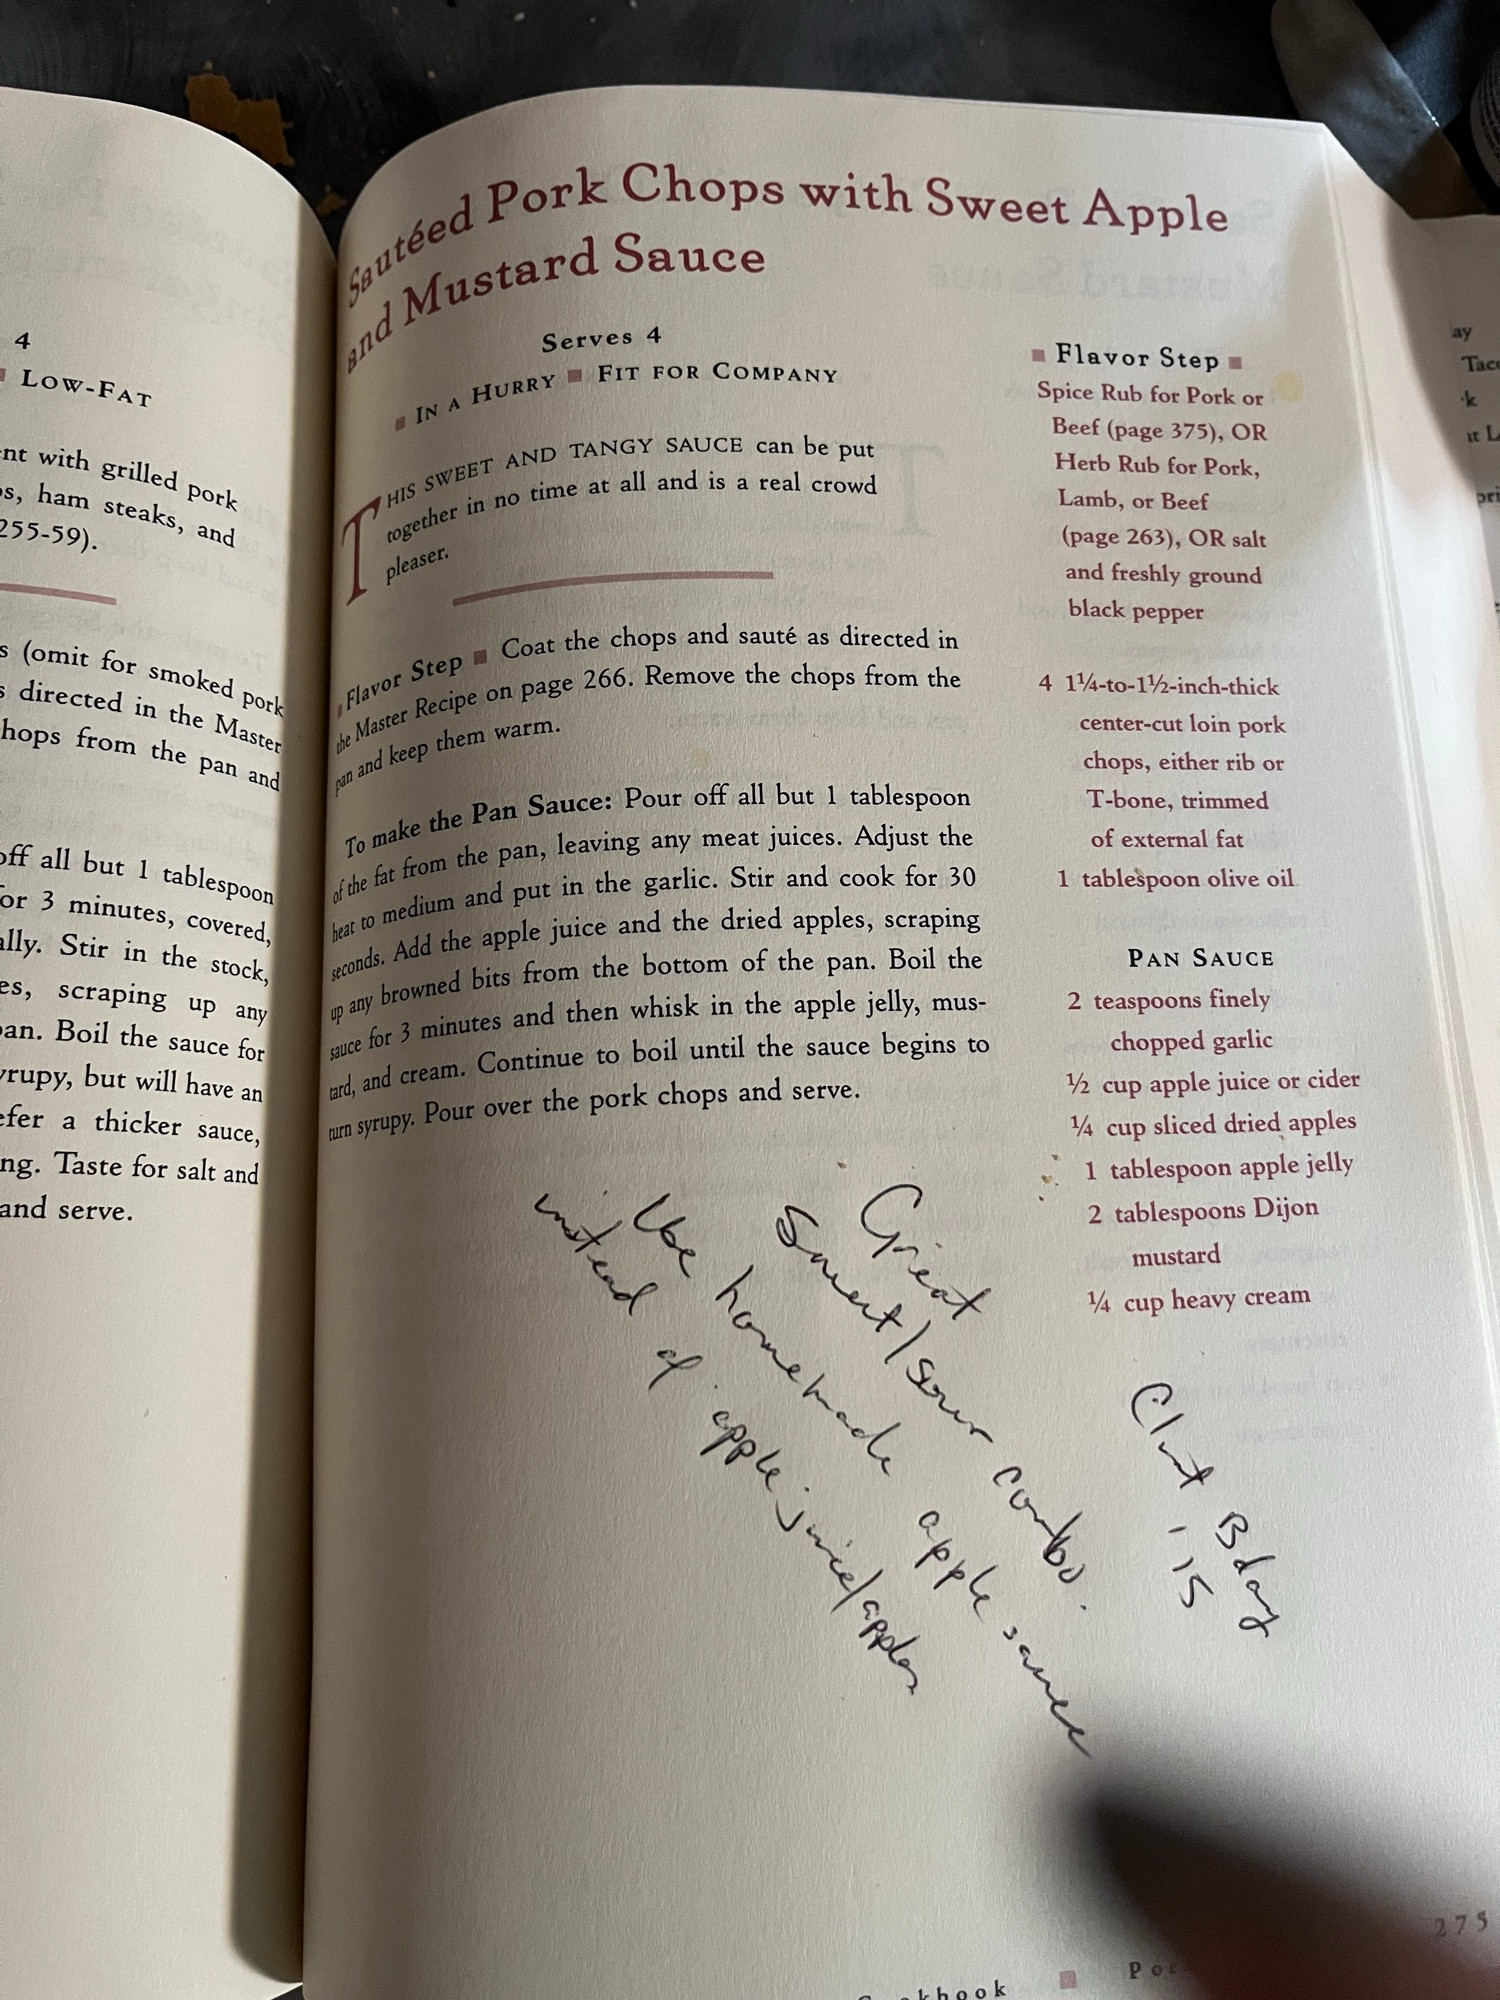 4
Low-Fat
nt with grilled pork
s, ham steaks, and
255-59).
s (omit for smoked pork
s directed in the Master
hops from the pan and
off all but 1 tablespoon
or 3 minutes, covered,
ally. Stir in the stock,
es, scraping up any
pan. Boil the sauce for
yrupy, but will have an
efer a thicker sauce,
ng. Taste for salt and
and serve.
Sautéed Pork Chops with Sweet Apple
and Mustard Sauce
Serves 4
■ In a Hurry ■ Fit for Company
This sweet and tangy sauce can be put
together in no time at all and is a real crowd
pleaser.
■ Flavor Step ■ Coat the chops and sauté as directed in
the Master Recipe on page 266. Remove the chops from the
pan and keep them warm.
To make the Pan Sauce: Pour off all but 1 tablespoon
of the fat from the pan, leaving any meat juices. Adjust the
heat to medium and put in the garlic. Stir and cook for 30
seconds. Add the apple juice and the dried apples, scraping
up any browned bits from the bottom of the pan. Boil the
sauce for 3 minutes and then whisk in the apple jelly, mus-
tard, and cream. Continue to boil until the sauce begins to
turn syrupy. Pour over the pork chops and serve.
■ Flavor Step ■
Spice Rub for Pork or
Beef (page 375), OR
Herb Rub for Pork,
Lamb, or Beef
(page 263), OR salt
and freshly ground
black pepper
4 1¼-to-1½-inch-thick
center-cut loin pork
chops, either rib or
T-bone, trimmed
of external fat
1 tablespoon olive oil
Pan Sauce
2 teaspoons finely
chopped garlic
½ cup apple juice or cider
¼ cup sliced dried apples
1 tablespoon apple jelly
2 tablespoons Dijon
mustard
¼ cup heavy cream
Great
Sweet/sour combo.
Use homemade apple sauce
instead of apple juice/apples
Clint Bday
'15
275
ay
Taco
k